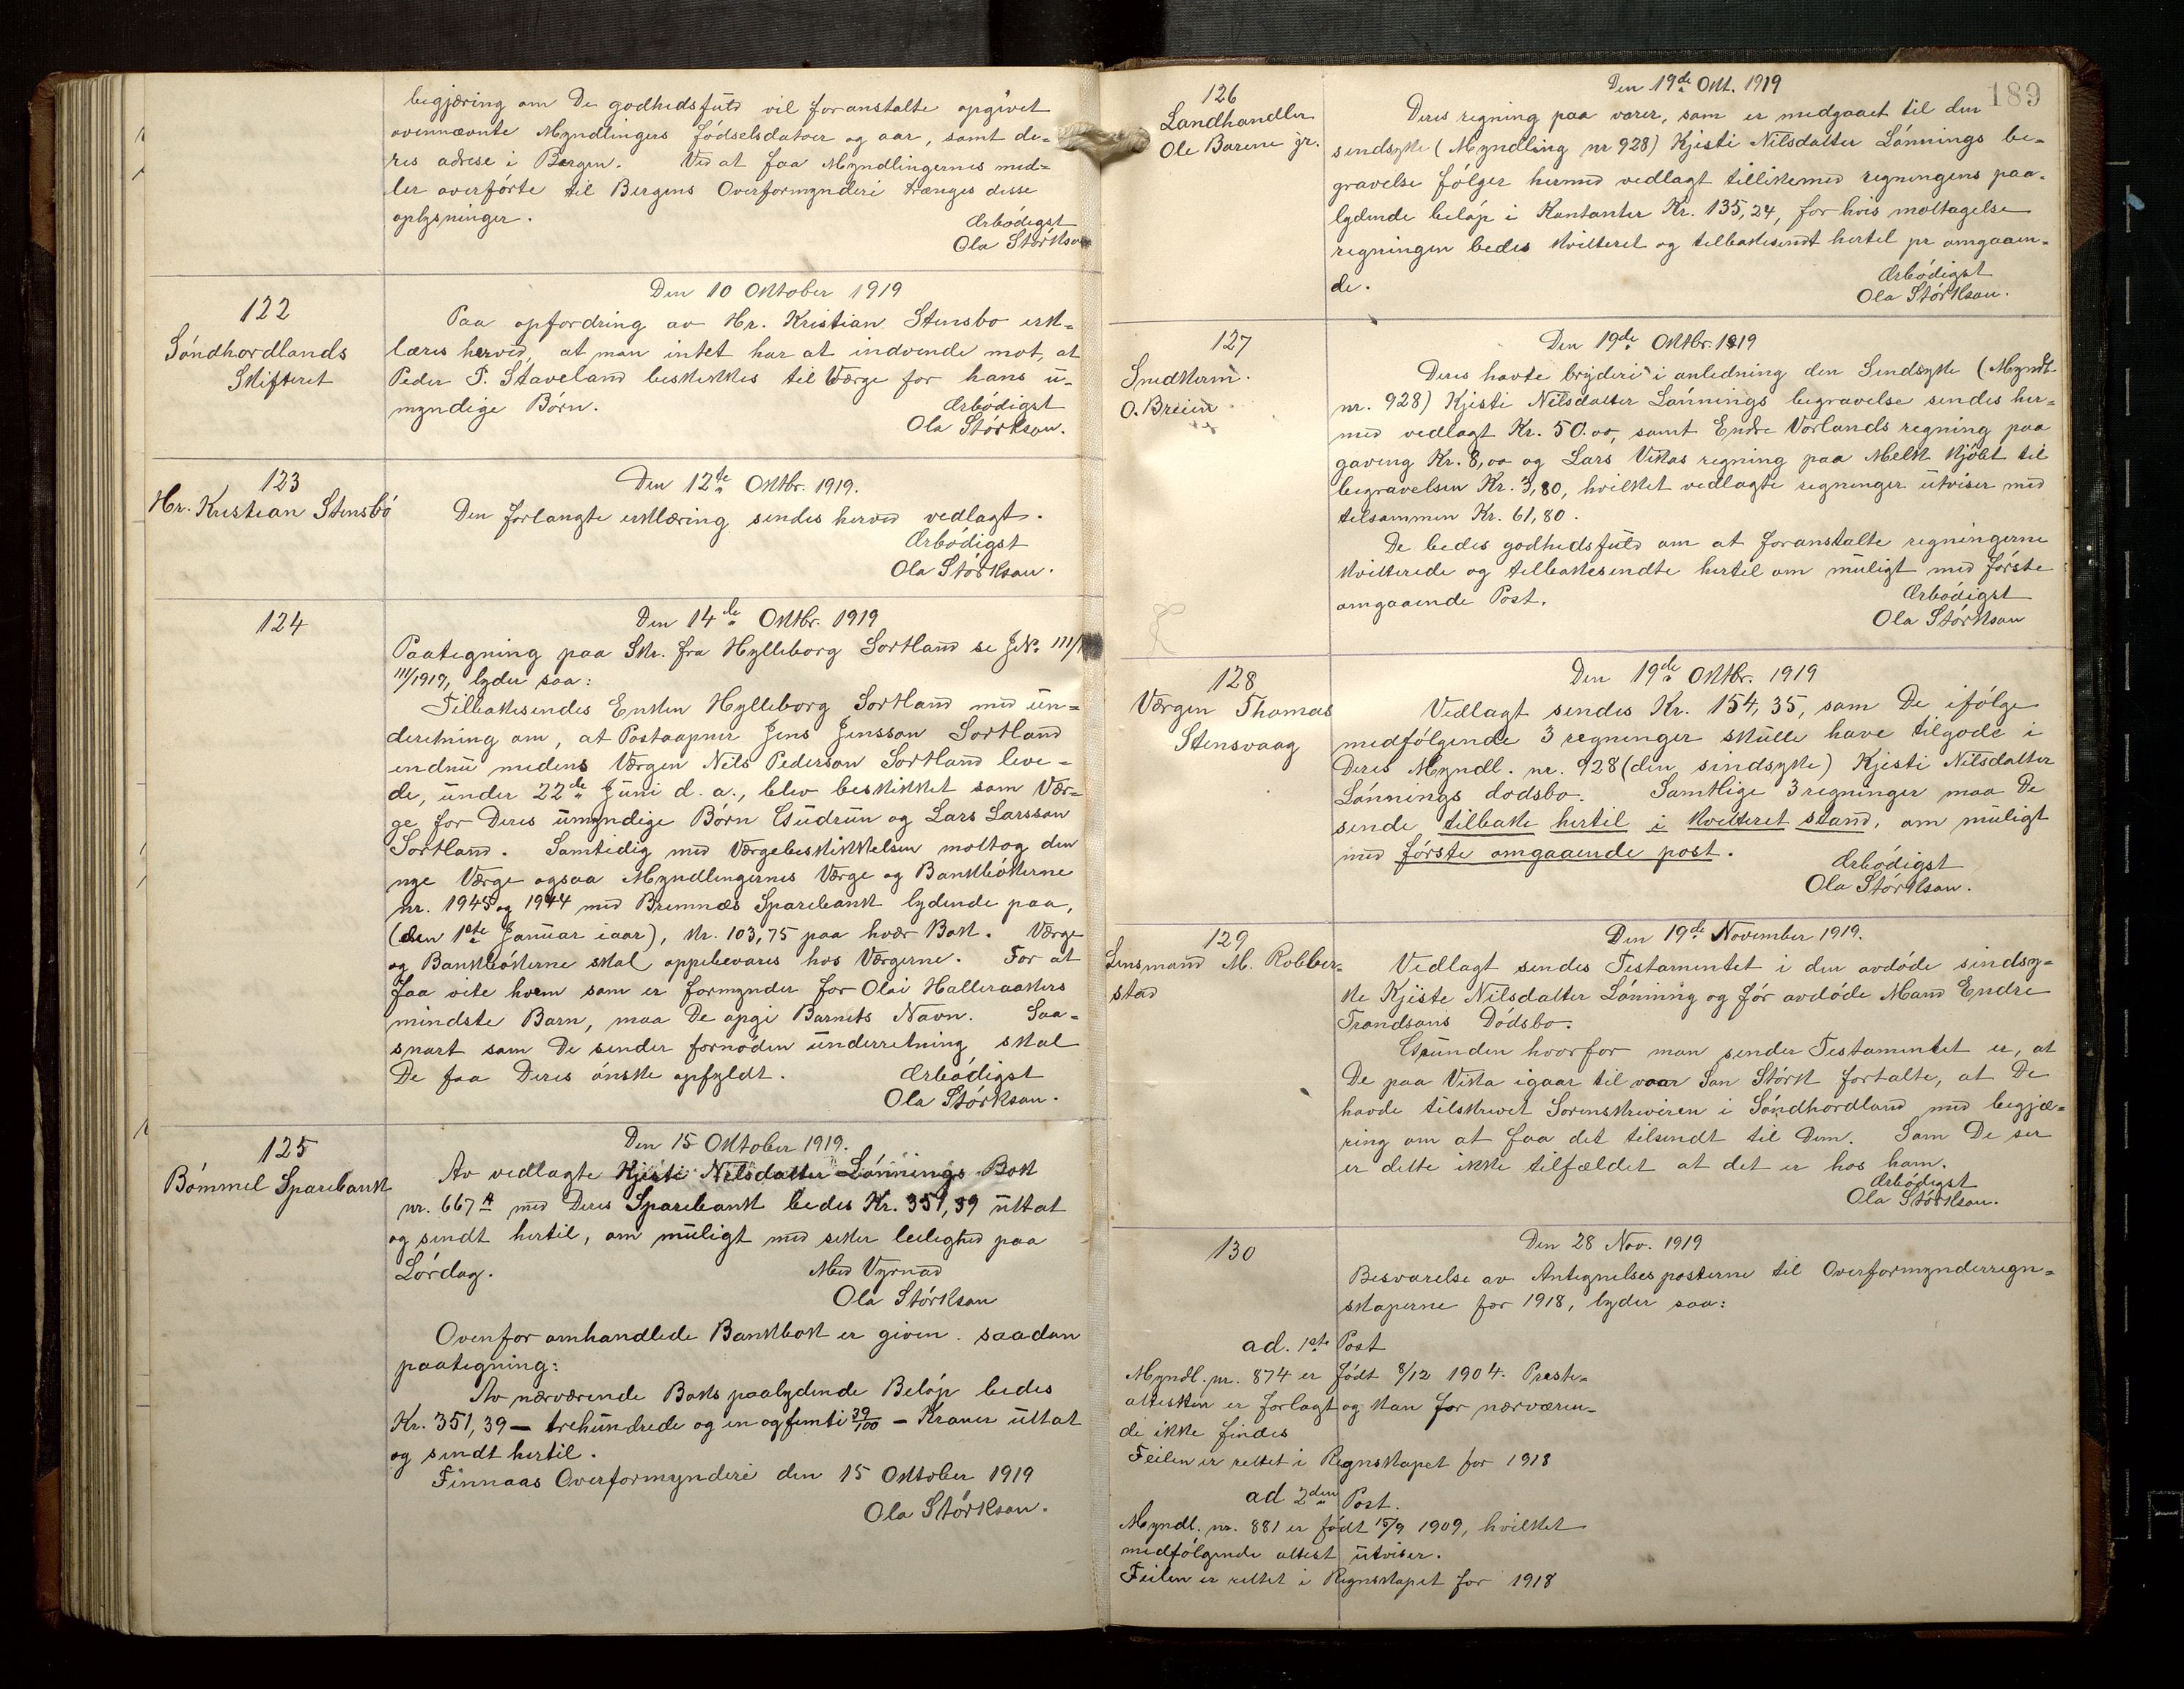 begjæring om De godhedsfuld vil foranstalte opgivet
ovennævnte Myndlingers födselsdatoer og aar, samt de-
res adrese i Bergen. Ved at faa Myndlingernes mid-
ler overförte til Bergens Overformynderi trænges disse
oplysninger.
Ærbödigst
Ola Störkson
122
Söndhordlands
Skifteret
Den 10 Oktober 1919
Paa opfordring av Hr. Kristian Stensbo erk-
læres herved, at man intet har at indvende mot, at
Peder T. Staveland beskikkes til Værge for hans u-
myndige Börn.
Ærbödigst
Ola Störkson.
123
Hr. Kristian Stensbö
Den 12te Oktbr. 1919.
Den forlangte erklæring sendes herved vedlagt.
Ærbödigst
Ola Störkson.
124
Den 14de Oktbr. 1919
Paategning paa Skr. fra Hylleborg Sortland se J.No 111/1
111/1919, lyder saa:
Tilbakesendes Enken Hylleborg Sortland med un-
deretning om, at Postaapner Jens Jensson Sortland
endnu medens Værgen Nils Pederson Sortland leve-
de, under 22de Juni d.a., blev beskikket som Vær-
ge for Deres umyndige Börn Gudrun og Lars Larsson
Sortland. Samtidig med Værgebeskikkelsen mottog den
nye Værge ogsaa Myndlingernes Værge og Bankbökerne
nr. 1945 og 1944 med Bremnæs Sparebank lydende paa,
(den 1ste Januar iaar), kr. 103,75 paa hver Bok. Værge
og Bankbökerne skal oppebevares hos Værgerne. For at
faa vite hvem som er formynder for Olai Halleraakers
mindste Barn, maa De opgi Barnets Navn. Saa-
snart som De sender fornöden underretning skal
De faa Deres önske opfyldt.
Ærbödigst
Ola Störkson.
125
Bömmel Sparebank
Den 15 Oktober 1919.
Av vedlagte Kjisti Nilsdatter Lönnings Bok
nr. 667 A med Deres Sparebank bedes Kr. 351,39 uttat
og sendt hertil, om muligt med sikker leilighed paa
Lördag.
Med Vyrnad
Ola Störkson
Ovenfor omhandlede Bankbok er given saadan
paategning:
Av nærværende Boks paalydende Belöp bedes
Kr. 351,39 — trehundrede og en og femti 39/100 — Kroner uttat
og sendt hertil.
Finnaas Overformynderi den 15 Oktober 1919
Ola Störkson.
189
126
Landhandler
Ole Barene jr.
Den 19de Okt. 1919
Deres regning paa varer, som er medgaaet til den
sindsyke (Myndling nr 928) Kjisti Nilsdatter Lönnings be-
gravelse fölger hermed vedlagt tillikemed regningens paa-
lydende belöp i Kontanter Kr. 135,24, for hvis mottagelse
regningen bedes kvitteret og tilbakesendt hertil pr omgaaen-
de.
Ærbödigst
Ola Störkson.
127
Snedkerm.
O. Breien
Den 19de Oktbr. 1919
Deres havte bryderi i anledning den Sindsyke (Myndl.
nr. 928) Kjisti Nilsdatter Lönnings begravelse sendes her-
med vedlagt Kr. 50.00, samt Endre Vorlands regning paa
graving Kr. 8,00 og Lars Vikas regning paa Melk kjöbt til
begravelsen Kr. 3,80, hvilket vedlagte regninger utviser med
tilsammen Kr. 61,80.
De bedes godhedsfuld om at foranstalte regningerne
kvitterede og tilbakesendte hertil om muligt med förste
omgaaende Post.
Ærbödigst
Ola Störkson
128
Værgen Thomas
Stensvaag
Den 19de Oktbr. 1919
Vedlagt sendes Kr. 154,35, som De ifölge
medfölgende 3 regninger skulle have tilgode i
Deres Myndl. nr. 928 (den sindsyke) Kjisti Nilsdatter
Lönnings dodsbo. Samtlige 3 regninger maa De
sende tilbake hertil i kvitteret stand, om muligt
med förste omgaaende post.
Ærbödigst
Ola Störkson.
129
Lensmand M. Robber-
stad
Den 19de November 1919.
Vedlagt sendes Testamentet i den avdöde sindsy-
ke Kjiste Nilsdatter Lönning og för avdöde Mand Endre
Trondsons Dödsbo.
Grunden hvorfor man sender Testamentet er, at
De paa Vika igaar til vaar Son Störk fortalte, at De
havde tilskrevet Sorenskriveren i Söndhordland med begjæ-
ring om at faa det tilsendt til Dem. Som De ser
er dette ikke tilfældet at det er hos ham.
Ærbödigst
Ola Störkson.
130
Den 28 Nov. 1919
Besvarelse av Antegnelsesposterne til Overformynderregn-
skaperne for 1918, lyder saa:
ad. 1ste Post
Myndl. nr. 874 er födt 8/12 1904. Preste-
attesten er forlagt og kan for nærværen-
de ikke findes
Feilen er rettet i Regnskapet for 1918
ad 2den Post.
Myndl. nr. 881 er födt 15/9 1909, hvilket
medfölgende attest utviser.
Feilen er rettet i Regnskapet for 1918